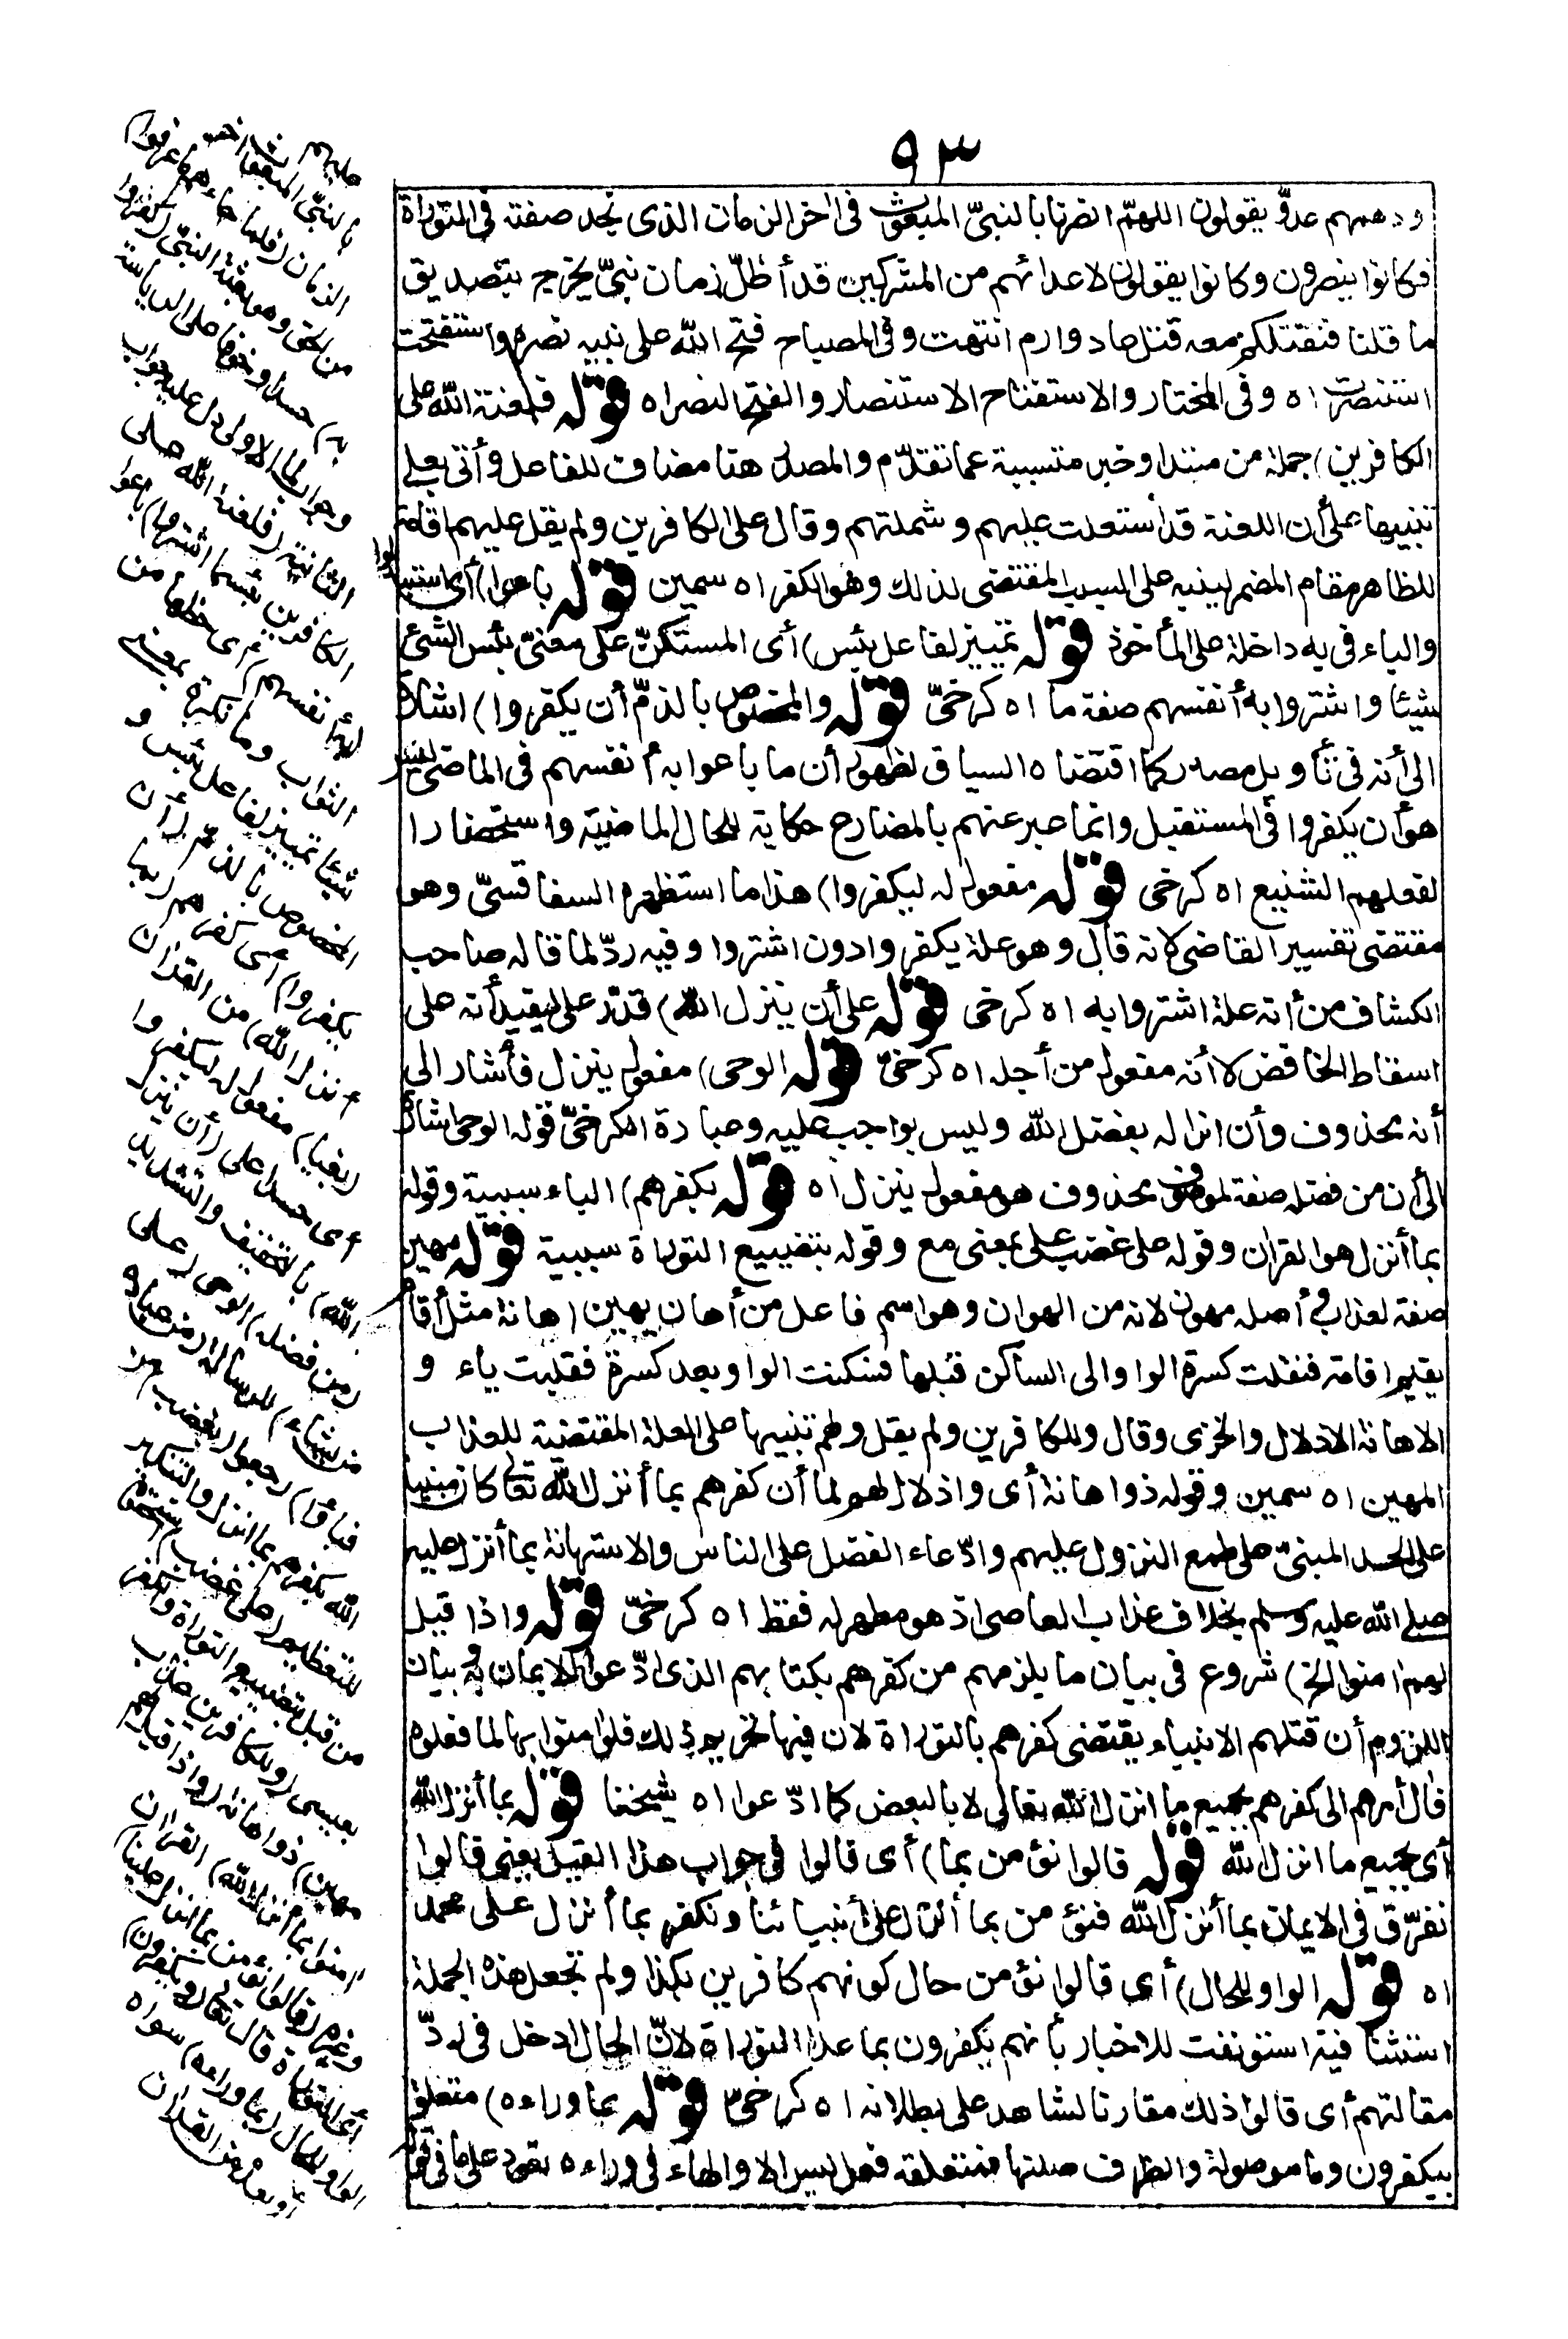 ٩٣
ودهمهم عدوّ يقولون اللهمّ انصرنا بالنبيّ المبعوث فى اخر الزمان الذى نجد صفته فى التوراة
فكانوا ينصرون وكانوا يقولون لاعدائهم من المشركين قد أظلّ زمان نبيّ يخرج بتصديق
ما قلنا فنقتلكم معه قتل عاد وارم انتهت وفى المصباح فتح الله على نبيه نصره واستفتحت
استنصرت اه وفى المختار والاستفتاح الاستنصار والفتح النصر اه قوله فلعنة الله على
الكافرين) جملة من مبتدا وخبر متسببة عما تقدّم والمصدر هنا مضاف للفاعل وأتى بعلى
تنبيها على أن اللعنة قد استعلت عليهم وشملتهم وقال على الكافرين ولم يقل عليهم اقامة
للظاهر مقام المضمر لينبه على السبب المقتضى لذلك وهو الكفر اه سمين قوله باعوا) أى استبدلوا
والباء فى به داخلة على المأخوذ قوله تمييز لفاعل بئس) أى المستكنّ على معنى بئس الشئ
شيئا واشتروا به أنفسهم صفة ما اه كرخىّ قوله والمخصوص بالذمّ أن يكفروا) اشارة
الى أنه فى تأويل مصدر كما اقتضاه السياق لظهور أن ما باعوا به أنفسهم فى الماضى ليس
هو أن يكفروا فى المستقبل وانما عبر عنهم بالمضارع حكاية للحال الماضية واستحضارا
لفعلهم الشنيع اه كرخى قوله مفعول له ليكفروا) هذا ما استظهره السفاقسىّ وهو
مقتضى تفسير القاضى لانه قال وهو علة يكفروا دون اشتروا وفيه ردّ لما قاله صاحب
الكشاف من أنه علة اشتروا به اه كرخى قوله على أن ينزل الله) قدّر على ليفيد أنه على
اسقاط الخافض لا أنه مفعول من أجله اه كرخىّ قوله الوحى) مفعول ينزل فأشار الى
أنه محذوف وأن انزاله بفضل الله وليس بواجب عليه وعبارة الكرخىّ قوله الوحى اشارة
الى أن من فضله صفة لموصوف محذوف هو مفعول ينزل اه قوله بكفرهم) الباء سببية وقوله
بما أنزل هو القران وقوله على غضب على بمعنى مع وقوله بتضييع التوراة سببية قوله مهين
صفة لعذاب وأصله مهون لانه من الهوان وهو اسم فاعل من أهان يهين اهانة مثل أقام
يقيم اقامة فنقلت كسرة الواو الى الساكن قبلها فسكنت الواو بعد كسرة فقلبت ياء و
الاهانة الاذلال والخزى وقال وللكافرين ولم يقل ولهم تنبيها على العلة المقتضية للعذاب
المهين اه سمين وقوله ذو اهانة أى واذلال لهم لما أن كفرهم بما أنزل الله تعالى كان مبنيا
على الحسد المبنىّ على طمع النزول عليهم وادّعاء الفضل على الناس والاستهانة بما أنزل عليه
صلى الله عليه وسلم بخلاف عذاب العاصى اذ هو مطهر له فقط اه كرخىّ قوله واذا قيل
لهم امنوا الخ) شروع فى بيان ما يلزمهم من كفرهم بكتابهم الذى ادّعوا الايمان به وبيان
اللزوم أن قتلهم الانبياء يقتضى كفرهم بالتوراة لان فيها تحريم ذلك فلو امنوا بها لما فعلوه
فال أمرهم الى كفرهم بجميع ما انزل الله تعالى لا بالبعض كما ادّعوا اه شيخنا قوله بما أنزل الله
أى بجميع ما انزل الله قوله قالوا نؤمن بما) أى قالوا فى جواب هذا القيل يعنى قالوا
نفرّق فى الايمان بما أنزل الله فنؤمن بما أنزل على أنبيائنا ونكفر بما أنزل على محمد
اه قوله الواو للحال) أى قالوا نؤمن حال كونهم كافرين بكذا ولم تجعل هذه الجملة
استئنافية استؤنفت للاخبار بأنهم يكفرون بما عدا التوراة لانّ الحال ادخل فى ردّ
مقالتهم أى قالوا ذلك مقارنا لشاهد على بطلانه اه كرخىّ قوله بما وراءه) متعلق
بيكفرون وما موصولة والظرف صلتها فمتعلقه فعل ليس الا والهاء فى وراءه تعود على ما فى قوله
عليهم
بالنبىّ المبعوث اخر
الزمان (فلما جاءهم ما عرفوا)
من الحق وهو بعثة النبىّ (كفروا
به) حسدا وخوفا على الرياسة
وجواب لما الاولى دل عليه جواب
الثانية (فلعنة الله على
الكافرين بئسما اشتروا) باعوا
(به أنفسهم) أى حظها من
الثواب وما نكرة بمعنى
شيئا تمييز لفاعل بئس و
المخصوص بالذم (أن
يكفروا) أى كفرهم (بما
أنزل الله) من القران
(بغيا) مفعول له ليكفروا
أى حسدا على (أن ينزل
الله) بالتخفيف والتشديد
(من فضله) الوحى (على
من يشاء) للرسالة (من عباده
فباؤا) رجعوا (بغضب) من
الله بكفرهم بما انزل والتنكير
للتعظيم (على غضب) استحقوه
من قبل بتضييع التوراة والكفر
بعيسى (وللكافرين عذاب
مهين) ذو اهانة (واذا قيل لهم
امنوا بما أنزل الله) القران
وغيره (قالوا نؤمن بما انزل علينا)
أى التوراة قال تعالى (ويكفرون)
الواو للحال (بما وراءه) سواه
أو بعده من القران